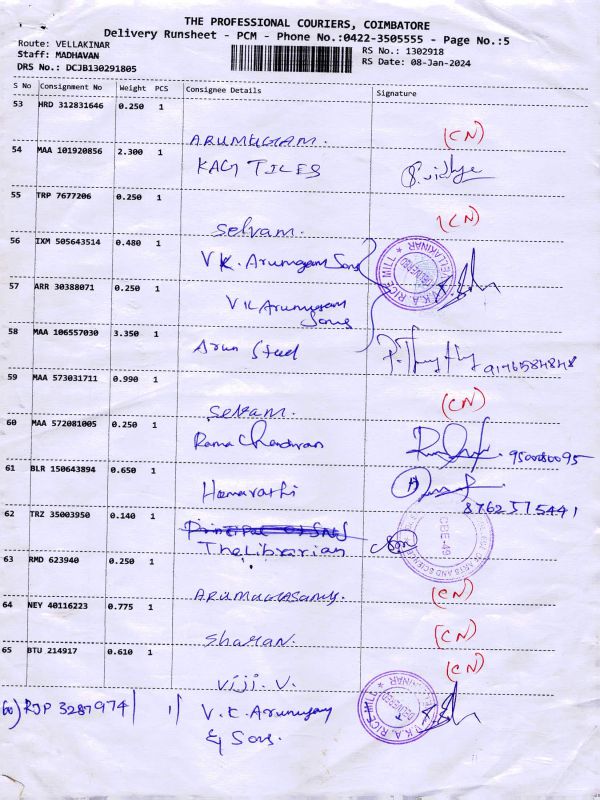 THE PROFESSIONAL COURIERS, COIMBATORE
Delivery Runsheet - PCM - Phone No.:0422-3505555 - Page No.:5
Route: VELLAKINAR
RS No.: 1302918
Staff: MADHAVAN
RS Date: 08-Jan-2024
DRS No.: DCJB130291805
S No Consignment No Weight PCS Consignee Details Signature
53 HRD 312831646 0.250 1
ARUMUGAM. (CN)
54 MAA 101920856 2.300 1
KAG TILES
55 TRP 7677206 0.250 1
Selvam. (CN)
56 IXM 505643514 0.480 1
V.K. Arumugam Sons
57 ARR 30388071 0.250 1
VK Arumugam
Sons
V.K.A. RICE MILL * VELLAKINAR *
DELIVERED
58 MAA 106557030 3.350 1
Arun Steel
59 MAA 573031711 0.990 1
Selvam. (CN)
60 MAA 572081005 0.250 1
Rama Chandran
61 BLR 150643894 0.650 1
Hemarathi
8762575441
62 TRZ 35003950 0.140 1
Principal of SNS
The Librarian
CBE-49
OF ARTS AND SCIENCE
63 RMD 623940 0.250 1
ARUMUGASAMY. (CN)
64 NEY 40116223 0.775 1
Sharan. (CN)
65 BTU 214917 0.610 1
Viji. V. (CN)
66) RJP 32879741 1
V.K. Arumugam
& Sons.
V.K.A. RICE MILL * VELLAKINAR *
DELIVERED